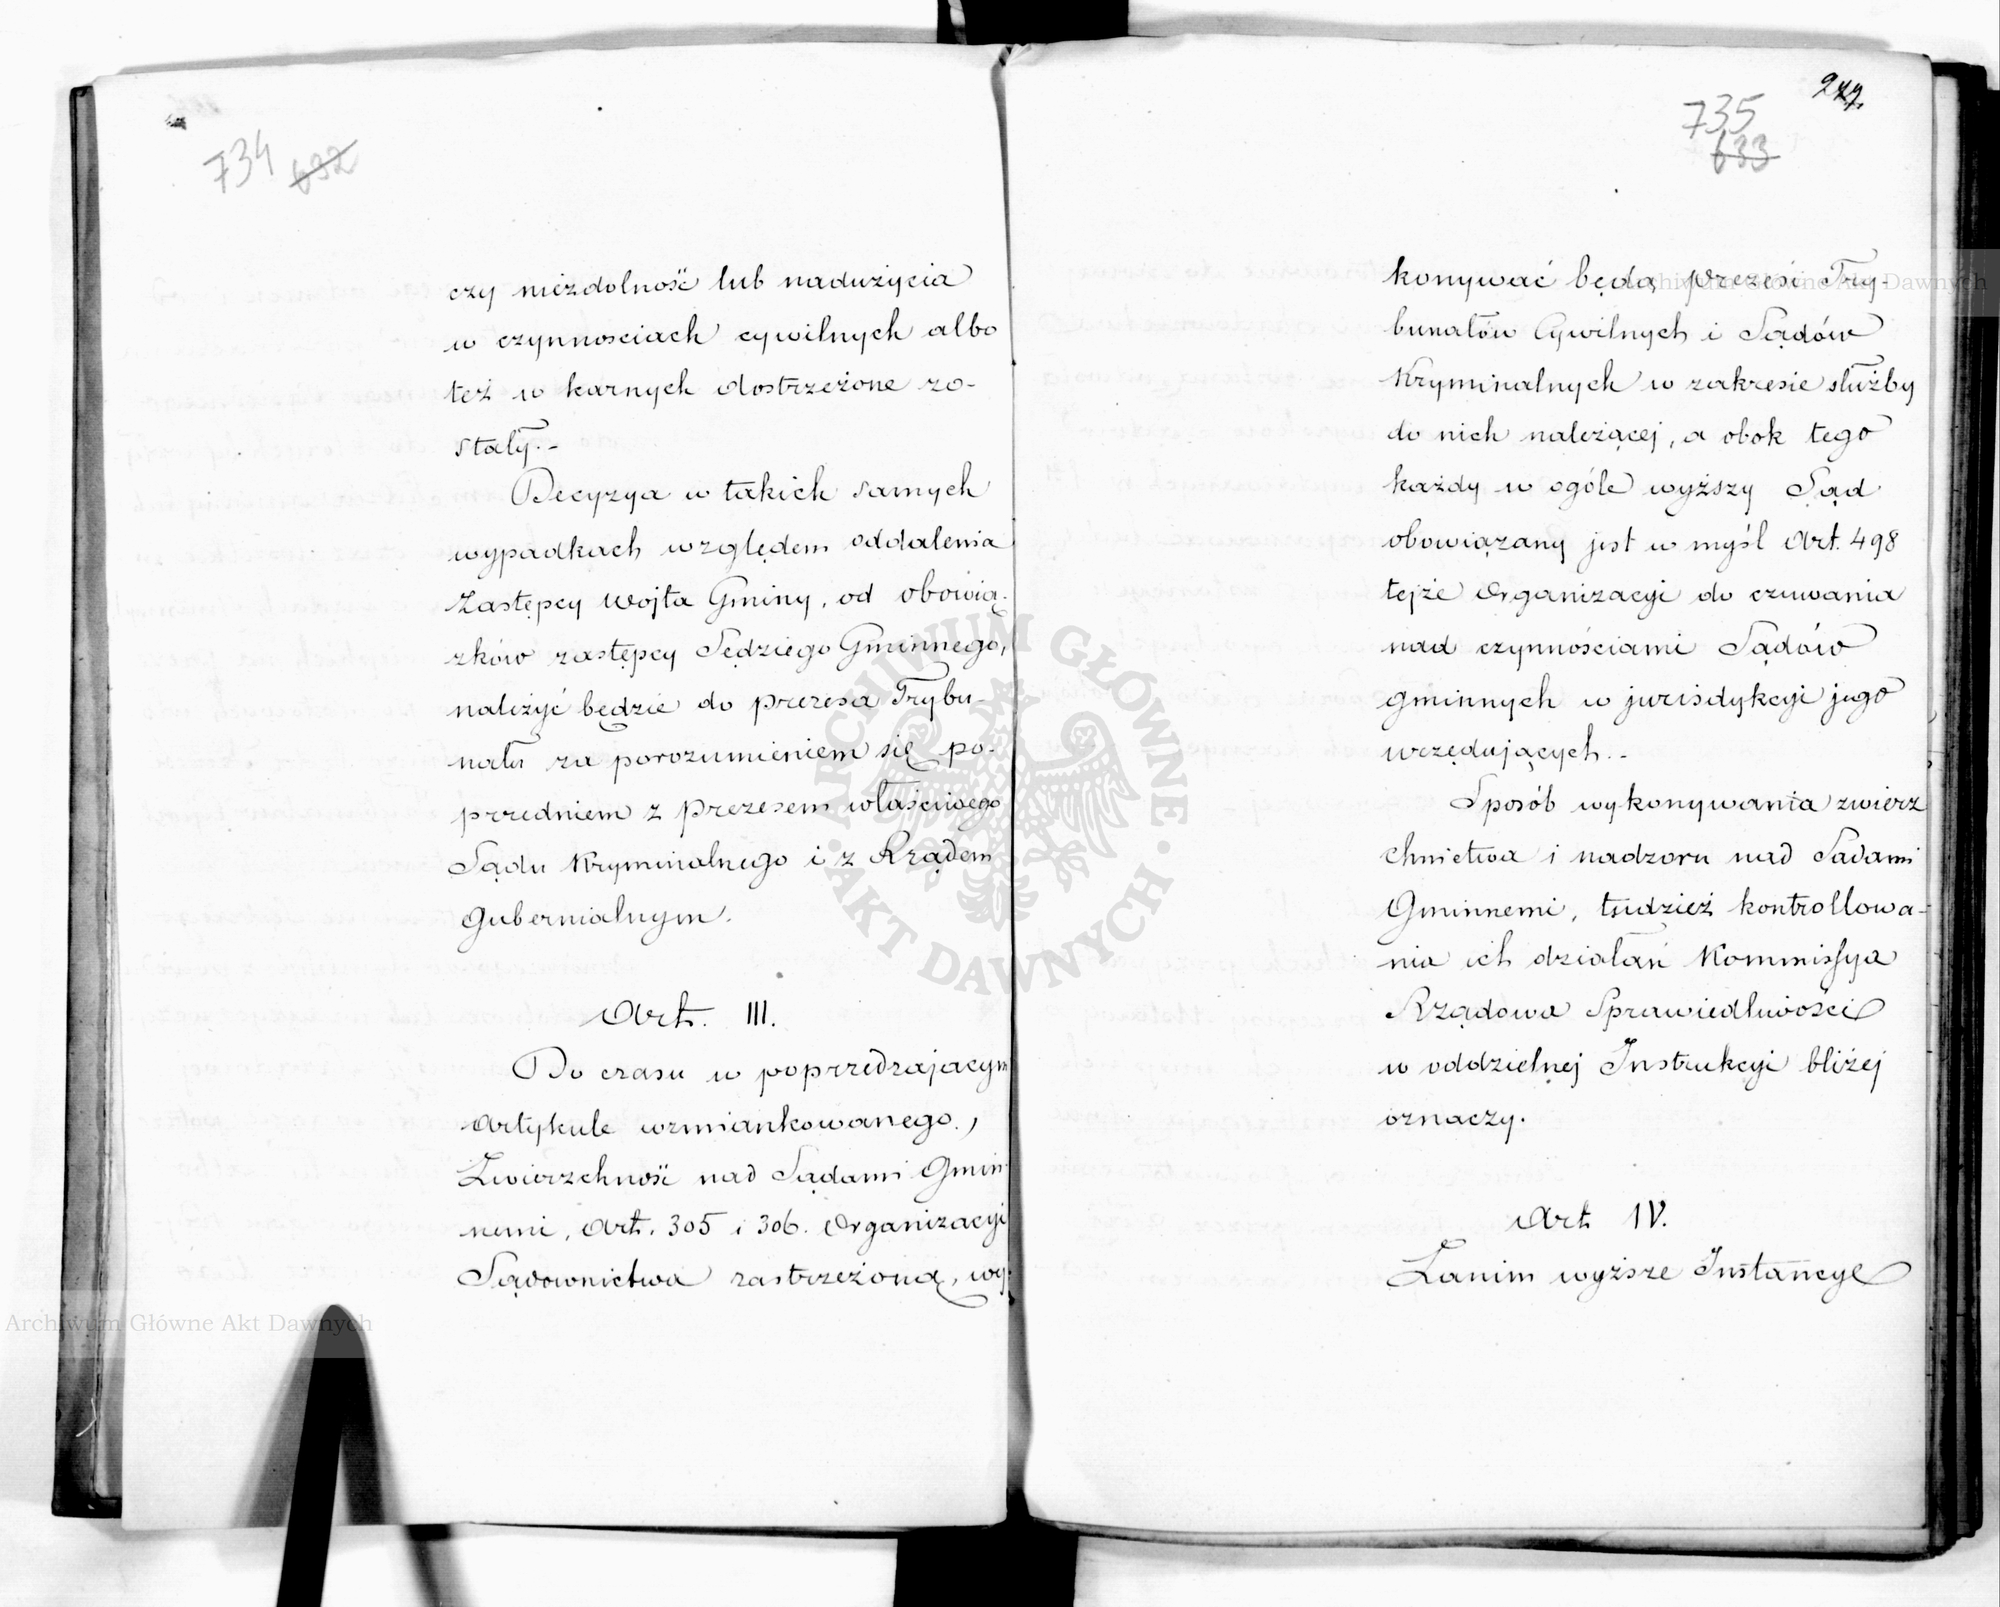 734 632
czy niezdolność lub nadużycia
w czynnosciach cywilnych albo
też w karnych dostrzeżone zo-
stały.-
Decyzya w takich samych
wypadkach względem oddalenia
Zastępcy Wojta Gminy, od obowią-
zków zastępcy Sędziego Gminnego,
należyć będzie do prezesa Trybu-
nału za porozumieniem się po-
przedniem z Prezesem właściwego
Sądu Kryminalnego i z Rządem
Gubernialnym.
Art. III.
Do czasu w poprzedzającym
Artykule wzmiankowanego,
Zwierzchność nad Sądami Gmin-
nemi, Art. 305 i 306. Organizacyi
Sądownictwa zastrzeżona, wy-
277.
735
633
konywać będą Prezesi Try-
bunałów Cywilnych i Sądów
Kryminalnych w zakresie służby
do nich należącej, a obok tego
każdy w ogóle wyższy Sąd
obowiązany jest w myśl Art. 498
tejże Organizacyi do czuwania
nad czynnościami Sądów
gminnych w jurisdykcyi jego
urzędujących.-
Sposób wykonywania zwierz
chnictwa i nadzoru nad Sadami
Gminnemi, tudzież kontrollowa-
nia ich działań Kommissya
Rządowa Sprawiedliwości
w oddzielnej Instrukcyi bliżej
oznaczy.
Art IV.
Zanim wyższe Instancye
Archiwum Główne Akt Dawnych
Archiwum Główne Akt Dawnych
ARCHIWUM GŁÓWNE AKT DAWNYCH